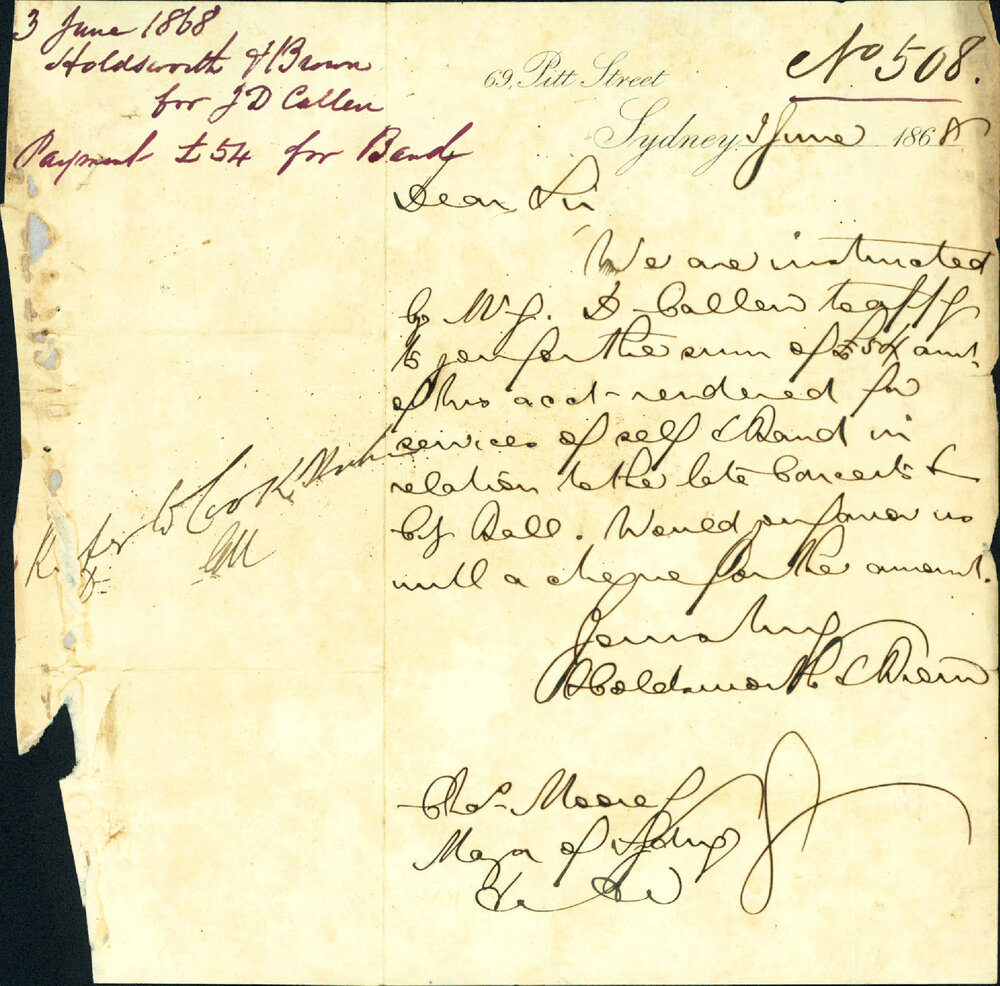 3 June 1868
Holdsworth & Brown
for J D Callen
Payment £54 for Band
No 508.
69, Pitt Street
Sydney June 1868
Dear Sir
We are instructed
by Mr J. D. Callen to apply
to you for the sum of £54 amt.
of his acct rendered for
services of self & Band in
relation to the late Concerts &
Cy Ball. Would you favor us
with a cheque for the amount.
Yours truly
Holdsworth & Brown
Refer to
CM
Chas. Moore
Mayor of Sydney